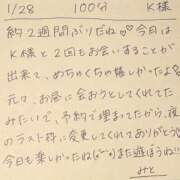 1/28 100分 K様
約2週間ぶりだね♡♡今月は
K様と2回もお会いすることが
出来て、めちゃくちゃ嬉しかったよ
元々、お昼に会おうとしてくれてた
みたいで、予約で埋まってたから、夜
のラスト枠に変更してくれてありがとう
今日も楽しかったね(^^)また遊ぼうね!!
みと